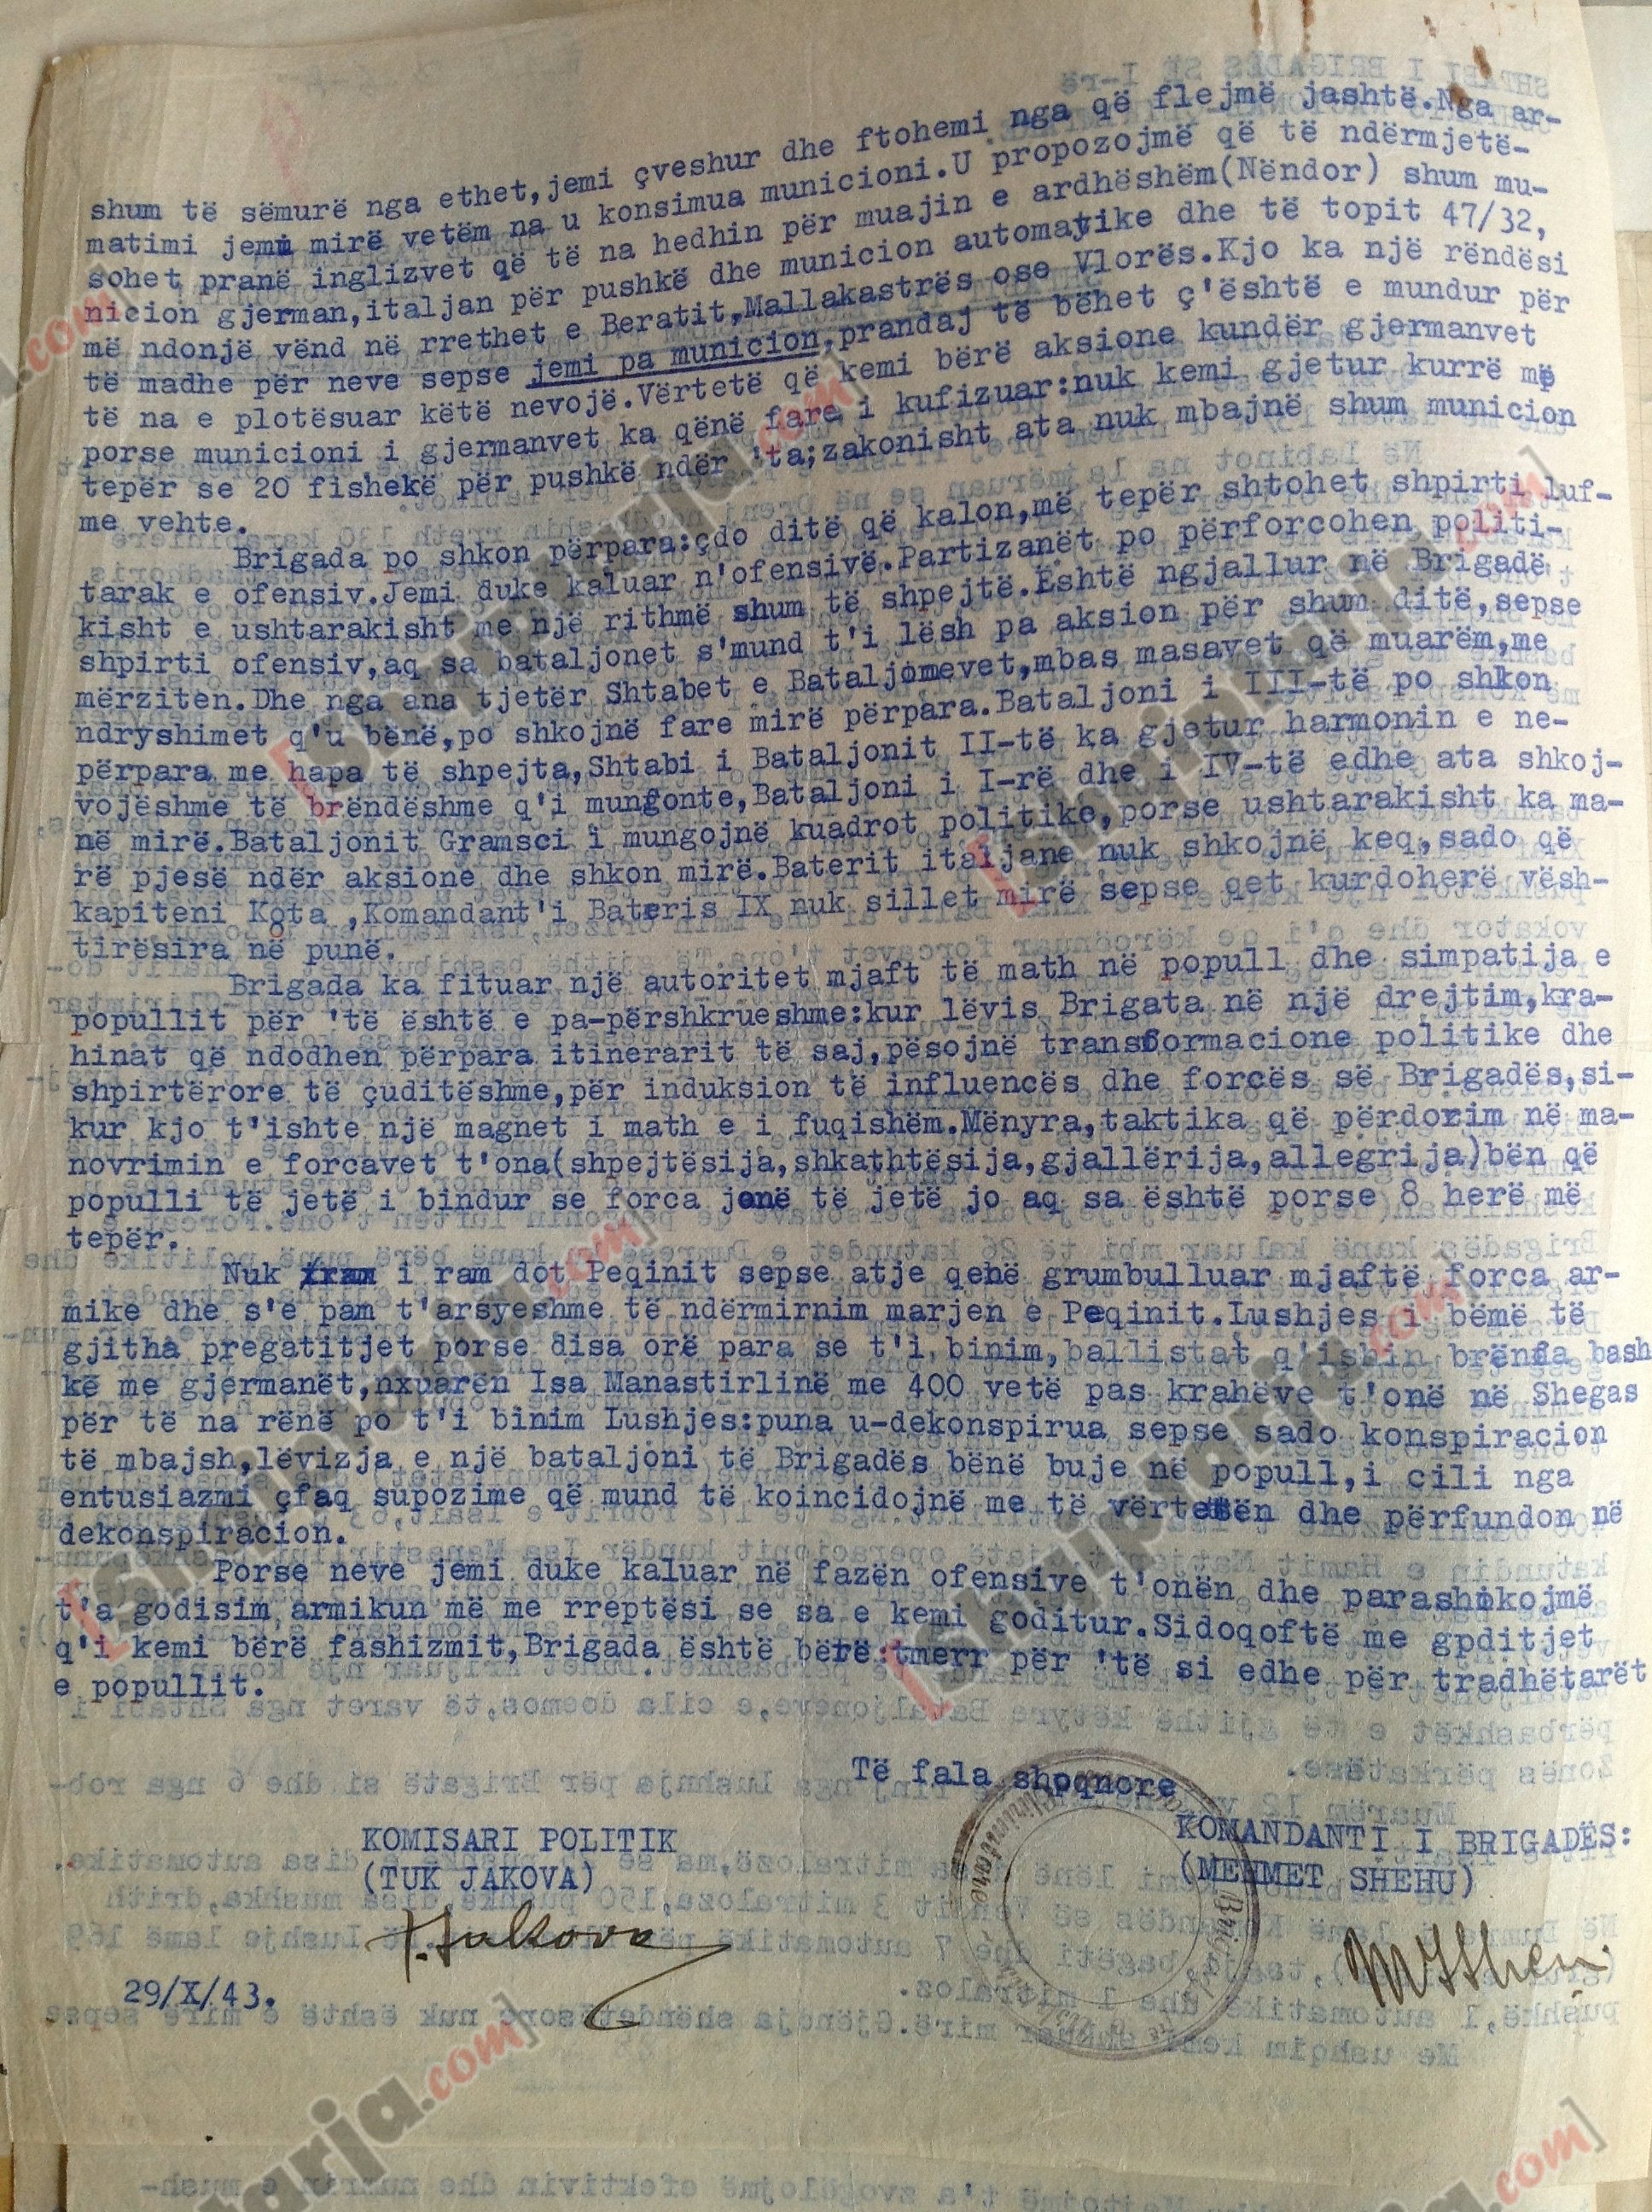 shum të sëmurë nga ethet,jemi çveshur dhe ftohemi nga që flejmë jashtë.Nga ar-
matimi jemi mirë vetëm na u konsimua municioni.U propozojmë që të ndërmjetë-
sohet pranë inglizvet që të na hedhin për muajin e ardhëshëm(Nëndor) shum mu-
nicion gjerman,italjan për pushkë dhe municion automatike dhe të topit 47/32,
më ndonjë vënd në rrethet e Beratit,Mallakastrës ose Vlorës.Kjo ka një rëndësi
të madhe për neve sepse jemi pa municion,prandaj të bëhet ç'është e mundur për
të na e plotësuar këtë nevojë.Vërtetë që kemi bërë aksione kundër gjermanvet
porse municioni i gjermanvet ka qënë fare i kufizuar:nuk kemi gjetur kurrë më
tepër se 20 fishekë për pushkë ndër 'ta;zakonisht ata nuk mbajnë shum municion
me vehte.
Brigada po shkon përpara:çdo ditë që kalon,më tepër shtohet shpirti luf-
tarak e ofensiv.Jemi duke kaluar n'ofensivë.Partizanët po përforcohen politi-
kisht e ushtarakisht me një rithmë shum të shpejtë.Është ngjallur në Brigadë
shpirti ofensiv,aq sa bataljonet s'mund t'i lësh pa aksion për shum ditë,sepse
mërziten.Dhe nga ana tjetër Shtabet e Bataljomevet,mbas masavet që muarëm,me
ndryshimet q'u bënë,po shkojnë fare mirë përpara.Bataljoni i III-të po shkon
përpara me hapa të shpejta,Shtabi i Bataljonit II-të ka gjetur harmonin e ne-
vojëshme të brëndëshme q'i mungonte,Bataljoni i I-rë dhe i IV-të edhe ata shkoj-
në mirë.Bataljonit Gramsci i mungojnë kuadrot politike,porse ushtarakisht ka ma-
rë pjesë ndër aksione dhe shkon mirë.Baterit italjane nuk shkojnë keq,sado që
kapiteni Kota ,Komandant'i Bateris IX nuk sillet mirë sepse qet kurdoherë vësh-
tirësira në punë.
Brigada ka fituar një autoritet mjaft të math në popull dhe simpatija e
popullit për 'të është e pa-përshkrueshme:kur lëvis Brigata në një drejtim,kra-
hinat që ndodhen përpara itinerarit të saj,pësojnë transformacione politike dhe
shpirtërore të çuditëshme,për induksion të influencës dhe forcës së Brigadës,si-
kur kjo t'ishte një magnet i math e i fuqishëm.Mënyra,taktika që përdorim në ma-
novrimin e forcavet t'ona(shpejtësija,shkathtësija,gjallërija,allegrija)bën që
populli të jetë i bindur se forca jonë të jetë jo aq sa është porse 8 herë më
tepër.
Nuk i ram dot Peqinit sepse atje qenë grumbulluar mjaftë forca ar-
mike dhe s'e pam t'arsyeshme të ndërmirnim marjen e Peqinit.Lushjes i bëmë të
gjitha pregatitjet porse disa orë para se t'i binim,ballistat q'ishin brënda bash
kë me gjermanët,nxuarën Isa Manastirlinë me 400 vetë pas krahëve t'onë në Shegas
për të na rënë po t'i binim Lushjes:puna u-dekonspirua sepse sado konspiracion
të mbajsh,lëvizja e një bataljoni të Brigadës bënë buje në popull,i cili nga
entusiazmi çfaq supozime që mund të koincidojnë me të vërtetën dhe përfundon në
dekonspiracion.
Porse neve jemi duke kaluar në fazën ofensive t'onën dhe parashikojmë
t'a godisim armikun më me rreptësi se sa e kemi goditur.Sidoqoftë me gpditjet
q'i kemi bërë fashizmit,Brigada është bërë:tmerr për 'të si edhe për tradhëtarët
e popullit.
Të fala shoqnore
KOMISARI POLITIK
(TUK JAKOVA)
KOMANDANTI I BRIGADËS:
(MEHMET SHEHU)
T.Jakova
MShehu
29/X/43.
[shqiptarja.com]